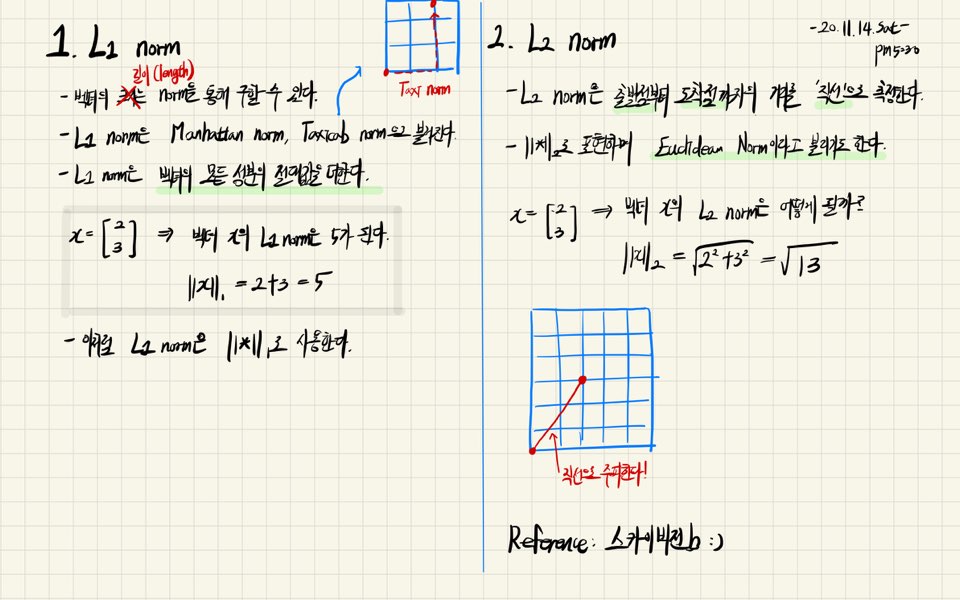 1. L1 norm
길이 (length)
- 벡터의 크기는 norm을 통해 구할 수 있다.
- L1 norm은 Manhattan norm, Taxicab norm으로 불리운다.
- L1 norm은 벡터의 모든 성분의 절대값을 더한다.
x = [2 3] ⇒ 벡터 x의 L1 norm은 5가 된다.
||x||₁ = 2+3 = 5
- 이처럼 L1 norm은 ||*||₁로 사용한다.
Taxi norm
-20.11.14.Sat-
pm5:30
2. L2 norm
- L2 norm은 출발점부터 도착점까지의 거리를 '직선'으로 측정한다.
- ||*||₂로 표현하며 Euclidean Norm이라고 불리기도 한다.
x = [2 3] ⇒ 벡터 x의 L2 norm은 어떻게 될까?
||x||₂ = √2²+3² = √13
직선으로
Reference: 스카이비전b :)